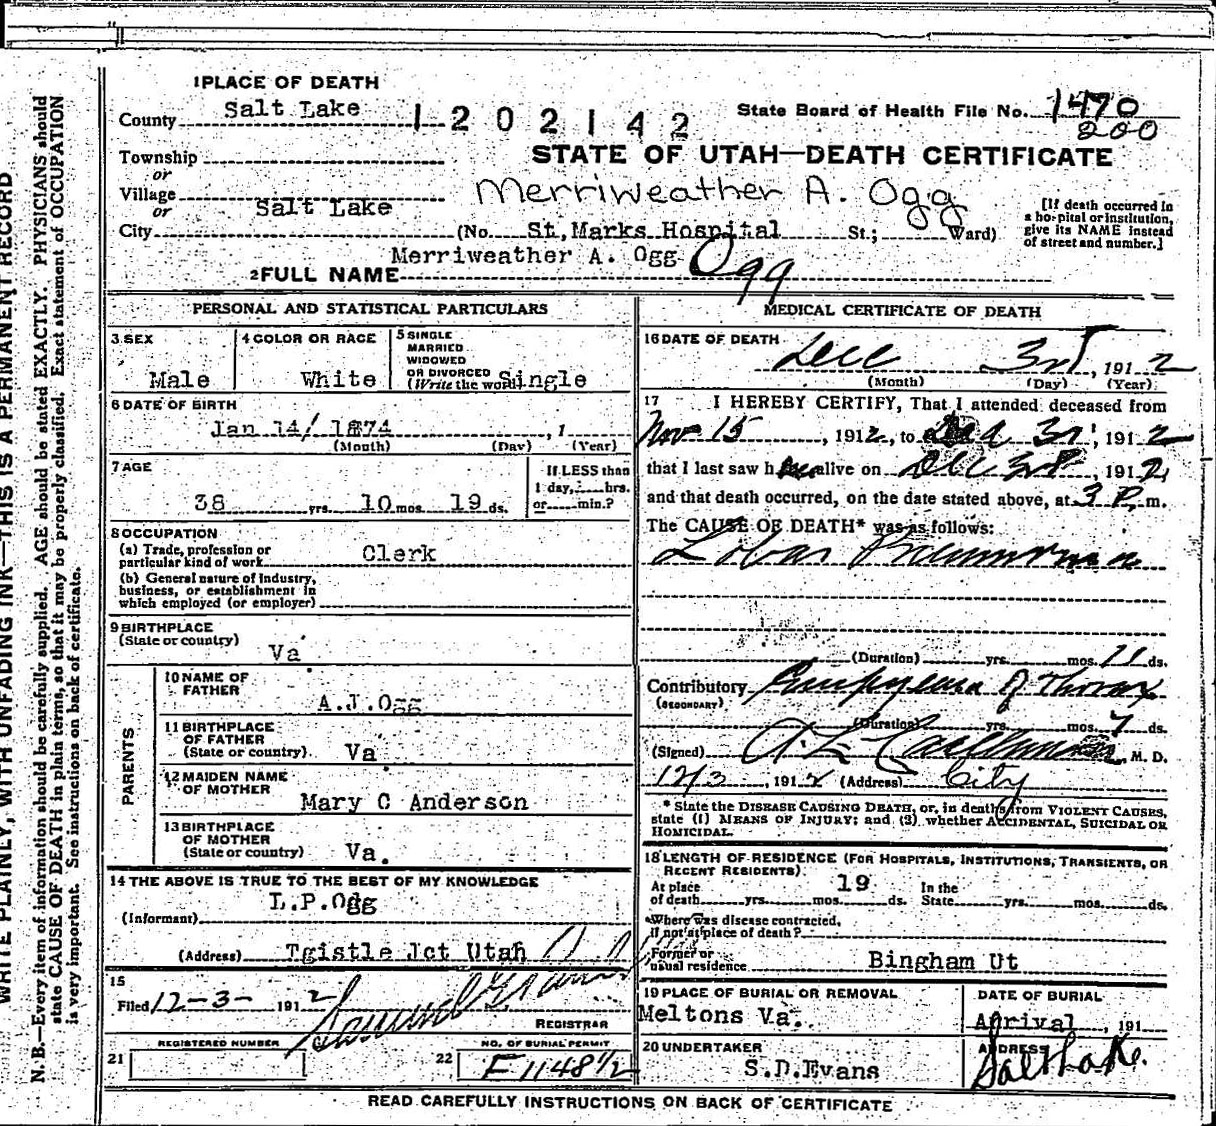 1 PLACE OF DEATH
County Salt Lake
1202142
State Board of Health File No. 1470
200
STATE OF UTAH—DEATH CERTIFICATE
Township
or
Village
or
City Salt Lake
Merriweather A. Ogg
(No. St, Marks Hospital St.; Ward)
[If death occurred in a hospital or institution, give its NAME instead of street and number.]
2 FULL NAME Merriweather A. Ogg Ogg
PERSONAL AND STATISTICAL PARTICULARS
3 SEX
Male
4 COLOR OR RACE
White
5 SINGLE
MARRIED
WIDOWED
OR DIVORCED
(Write the word) Single
6 DATE OF BIRTH
Jan 14/ 1874, 1
(Month) (Day) (Year)
7 AGE
38 yrs. 10 mos. 19 ds.
If LESS than
1 day, hrs.
or min.?
8 OCCUPATION
(a) Trade, profession or
particular kind of work Clerk
(b) General nature of industry,
business, or establishment in
which employed (or employer)
9 BIRTHPLACE
(State or country)
Va.
PARENTS
10 NAME OF
FATHER
A.J.Ogg
11 BIRTHPLACE
OF FATHER
(State or country) Va
12 MAIDEN NAME
OF MOTHER
Mary C Anderson
13 BIRTHPLACE
OF MOTHER
(State or country) Va.
14 THE ABOVE IS TRUE TO THE BEST OF MY KNOWLEDGE
(Informant) L.P.Ogg
(Address) Tgistle Jct Utah
15
Filed 12-3- 1912
REGISTRAR
REGISTERED NUMBER
21
NO. OF BURIAL PERMIT
22 F 1148 1/2
MEDICAL CERTIFICATE OF DEATH
16 DATE OF DEATH
Dec 3rd, 1912
(Month) (Day) (Year)
17 I HEREBY CERTIFY, That I attended deceased from
Nov 15, 1912, to Dec 3rd, 1912
that I last saw him alive on Dec 3rd, 1912,
and that death occurred, on the date stated above, at 3 P. m.
The CAUSE OF DEATH* was as follows:
Lobar Pneumonia
(Duration) yrs. mos. 11 ds.
Contributory Empyema of Thorax
(SECONDARY)
(Duration) yrs. mos. 7 ds.
(Signed) M. D.
12/3, 1912 (Address) City
* State the DISEASE CAUSING DEATH, or, in deaths from VIOLENT CAUSES,
state (1) MEANS OF INJURY; and (2) whether ACCIDENTAL, SUICIDAL OR
HOMICIDAL.
18 LENGTH OF RESIDENCE (FOR HOSPITALS, INSTITUTIONS, TRANSIENTS, OR
RECENT RESIDENTS)
At place
of death yrs. mos. 19 ds.
In the
State yrs. mos. ds.
Where was disease contracted,
if not at place of death?
Former or
usual residence Bingham Ut
19 PLACE OF BURIAL OR REMOVAL
Meltons Va.
DATE OF BURIAL
Arrival, 191
20 UNDERTAKER
S.D.Evans
ADDRESS
Salt Lake.
READ CAREFULLY INSTRUCTIONS ON BACK OF CERTIFICATE
WRITE PLAINLY, WITH UNFADING INK—THIS IS A PERMANENT RECORD
N. B.—Every item of information should be carefully supplied. AGE should be stated EXACTLY. PHYSICIANS should
state CAUSE OF DEATH in plain terms, so that it may be properly classified. Exact statement of OCCUPATION
is very important. See instructions on back of certificate.